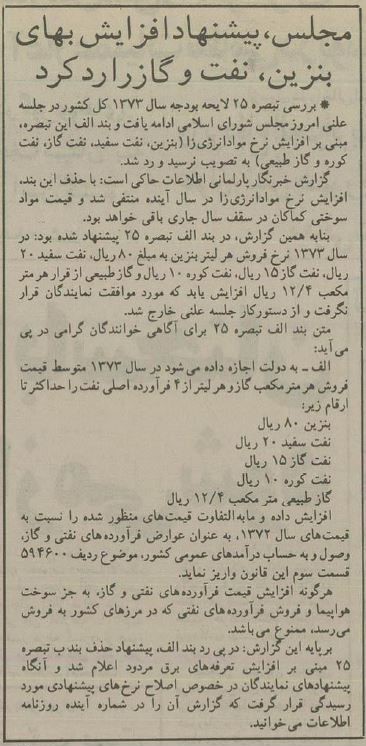 مجلس، پیشنهاد افزایش بهای
بنزین، نفت و گاز را رد کرد
* بررسی تبصره ۲۵ لایحه بودجه سال ۱۳۷۳ کل کشور در جلسه
علنی امروز مجلس شورای اسلامی ادامه یافت و بند الف این تبصره،
مبنی بر افزایش نرخ مواد انرژی زا (بنزین، نفت سفید، نفت گاز، نفت
کوره و گاز طبیعی) به تصویب نرسید و رد شد.
گزارش خبرنگار پارلمانی اطلاعات حاکی است: با حذف این بند،
افزایش نرخ مواد انرژی زا در سال آینده منتفی شد و قیمت مواد
سوختی کماکان در سقف سال جاری باقی خواهد بود.
بنابه همین گزارش، در بند الف تبصره ۲۵ پیشنهاد شده بود: در
سال ۱۳۷۳ نرخ فروش هر لیتر بنزین به مبلغ ۸۰ ریال، نفت سفید ۲۰
ریال، نفت گاز ۱۵ ریال، نفت کوره ۱۰ ریال و گاز طبیعی از قرار هر متر
مکعب ۱۲/۴ ریال افزایش یابد که مورد موافقت نمایندگان قرار
نگرفت و از دستور کار جلسه علنی خارج شد.
متن بند الف تبصره ۲۵ برای آگاهی خوانندگان گرامی در پی
می آید:
الف ـ به دولت اجازه داده می شود در سال ۱۳۷۳ متوسط قیمت
فروش هر متر مکعب گاز و هر لیتر از ۴ فرآورده اصلی نفت را حداکثر تا
ارقام زیر:
بنزین ۸۰ ریال
نفت سفید ۲۰ ریال
نفت گاز ۱۵ ریال
نفت کوره ۱۰ ریال
گاز طبیعی متر مکعب ۱۲/۴ ریال
افزایش داده و مابه التفاوت قیمت های منظور شده را نسبت به
قیمت های سال ۱۳۷۲، به عنوان عوارض فرآورده های نفتی و گاز،
وصول و به حساب درآمدهای عمومی کشور، موضوع ردیف ۵۹۴۶۰۰
قسمت سوم این قانون واریز نماید.
هرگونه افزایش قیمت فرآورده های نفتی و گاز، به جز سوخت
هواپیما و فروش فرآورده های نفتی که در مرزهای کشور به فروش
می رسد، ممنوع می باشد.
بر پایه این گزارش: در پی رد بند الف، پیشنهاد حذف بند ب تبصره
۲۵ مبنی بر افزایش تعرفه های برق مردود اعلام شد و آنگاه
پیشنهادهای نمایندگان در خصوص اصلاح نرخ های پیشنهادی مورد
رسیدگی قرار گرفت که گزارش آن را در شماره آینده روزنامه
اطلاعات می خوانید.